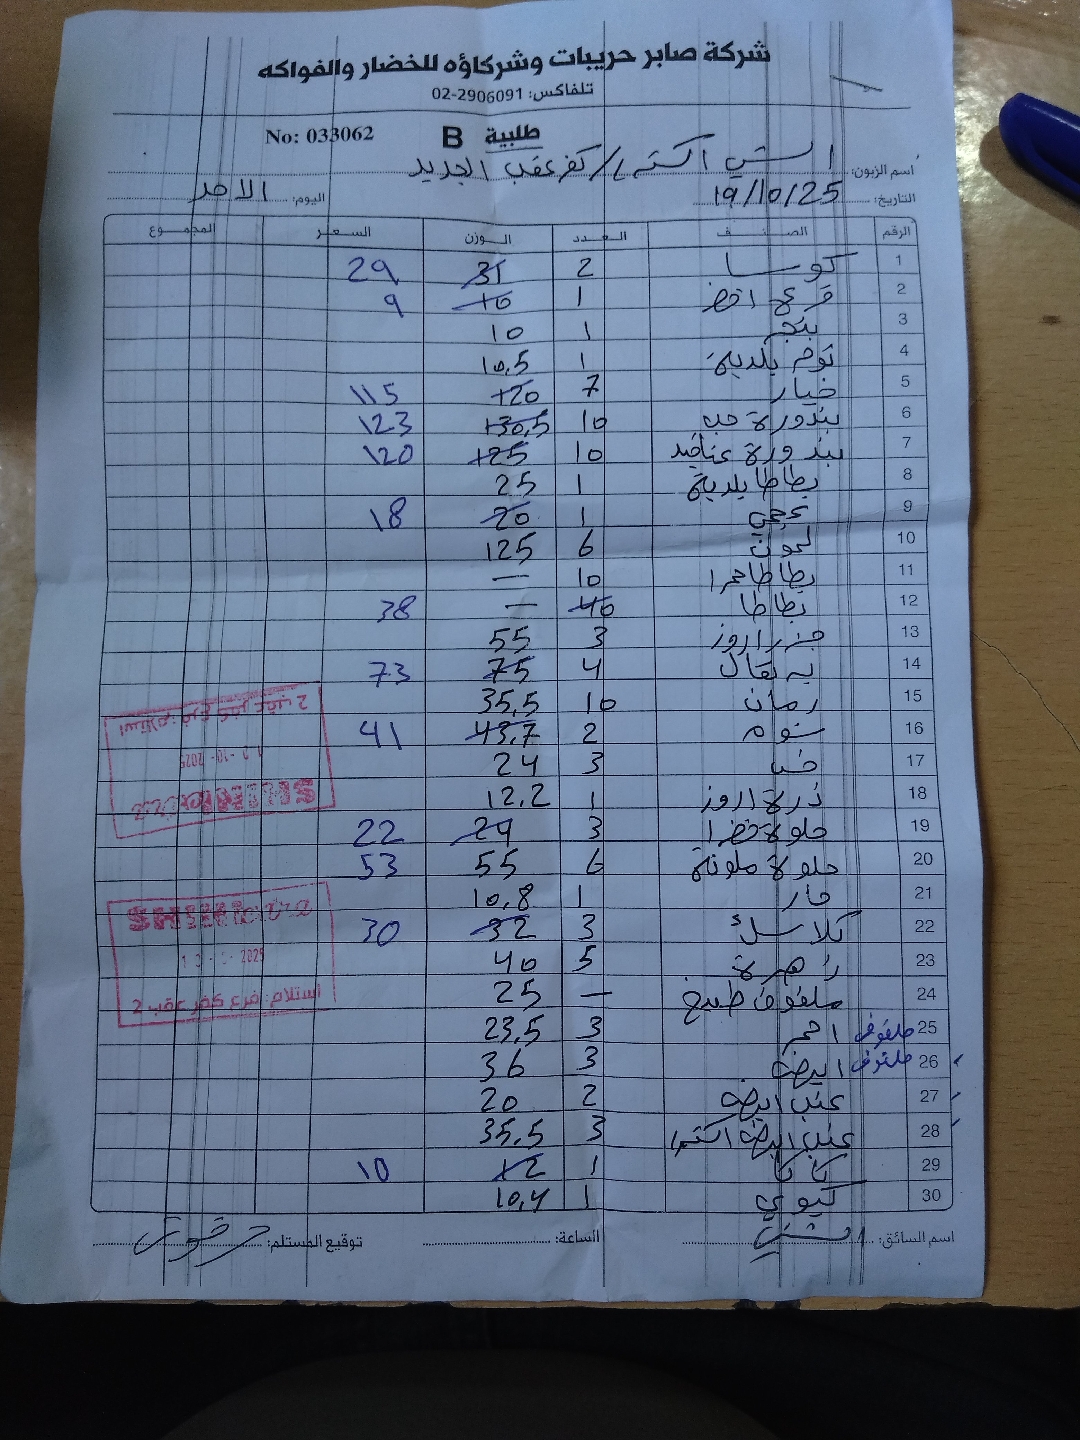 شركة صابر حريبات وشركاؤه للخضار والفواكه
تلفاكس: 02-2906091
No: 033062 طلبية B
اسم الزبون: الشني اكسترا / كفر عقب الجديد
التاريخ: 19/10/25 اليوم: الاحد
الرقم الصنف العدد الوزن السعر المجموع
1 كوسا 2 31 29
2 قرع اخضر 1 10 9
3 بتنجر 1 10
4 توم بلدية 1 10,5
5 خيار 7 120 115
6 بندورة حب 10 130,5 123
7 بندورة عناقيد 10 125 120
8 بطاطا بلدية 1 25
9 عجمي 1 20 18
10 ليمون 6 125
11 بطاطا حمرا 10 —
12 بطاطا 40 — 38
13 جزر اروز 3 55
14 برتقال 4 75 73
15 رمان 10 35,5
16 شوم 2 43,7 41
17 خس 3 24
18 ذرة اروز 1 12,2
19 حلوة خضرا 3 24 22
20 حلوة ملونة 6 55 53
21 حار 1 10,8
22 كلاسك 3 32 30
23 زهرة 5 40
24 ملفوف طبيخ — 25
25 ملفوف احمر 3 23,5
26 ملفوف ابيض 3 36
27 عنب ابيض 2 20
28 عنب ابيض اكسترا 3 35,5
29 كاكا 1 12 10
30 كيوي 1 10,4
استلام: فرع كفر عقب 2
استلام: فرع كفر عقب 2
اسم السائق: الساعة: توقيع المستلم: